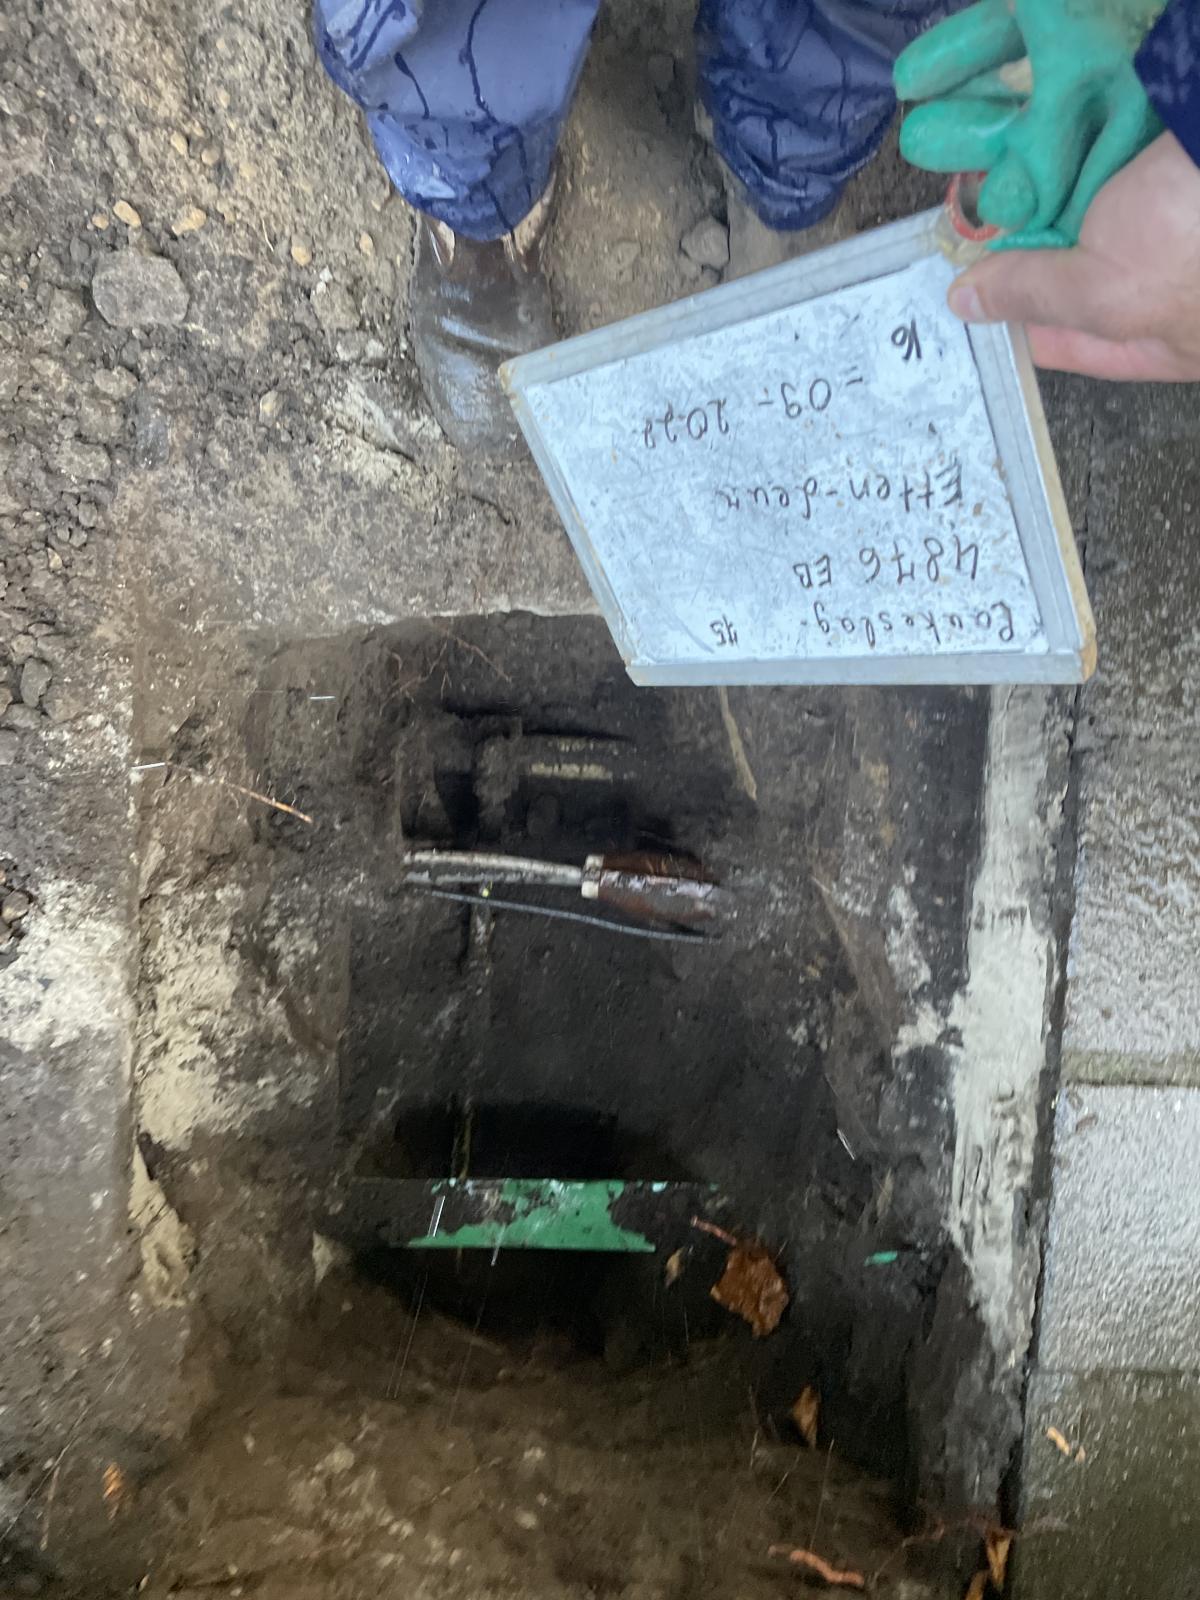 Paukeslag 15
4876 EB
Etten-Leur
= 09 - 2022
16